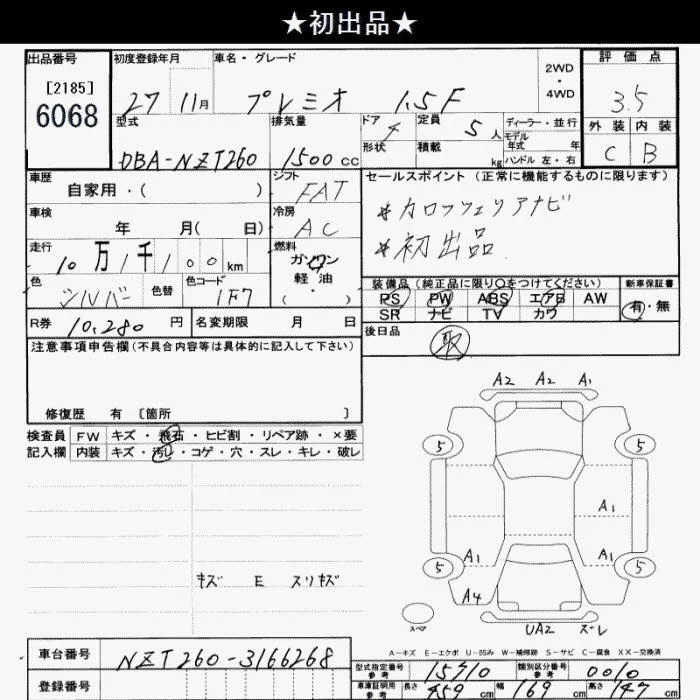 ★初出品★
出品番号 初度登録年月 車名・グレード 2WD・4WD 評価点
[2185]
6068 27 11月 プレミオ 1.5F 3.5
型式 排気量 ドア 4 定員 5人 ディーラー・並行 外装 内装
形状 積載 kg モデル年式 年
DBA-NZT260 1500cc ハンドル 左・右 C B
車歴 シフト セールスポイント (正常に機能するものに限ります)
自家用・( ) FAT
車検 冷房 *カロッツェリアナビ
年 月( 日) AC
走行 燃料 *初出品
10万1千100km ガソリン
色 色替 色コード 軽油・( )
シルバー 1F7
装備品 (純正品に限り○をつけてください) 新車保証書
PS PW ABS エアB AW 有・無
SR ナビ TV カワ
R券 10,280円 名変期限 月 日
後日品 取
注意事項申告欄(不具合内容等は具体的に記入して下さい)
修復歴 有 [箇所 ]
検査員 FW キズ・飛石・ヒビ割・リペア跡・×要
記入欄 内装 キズ・汚れ・コゲ・穴・スレ・キレ・破レ
A2 A2 A1
5 5
A1
A1 A1
5 5
A4
キズ E スリキズ
スペア
UA2 ズレ
A-キズ E-エクボ U-凹み W-補修跡 S-サビ C-腐食 XX-交換済
車台番号 NZT260-3166268
登録番号
型式指定番号 参考 15710 類別区分番号 参考 0010
車庫証明用 参考 長さ 459cm 幅 169cm 高さ 147cm